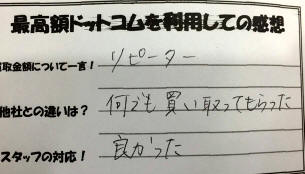 最高額ドットコムを利用しての感想
買取金額について一言！ リピーター
他社との違いは？ 何でも買い取ってもらった
スタッフの対応！ 良かった